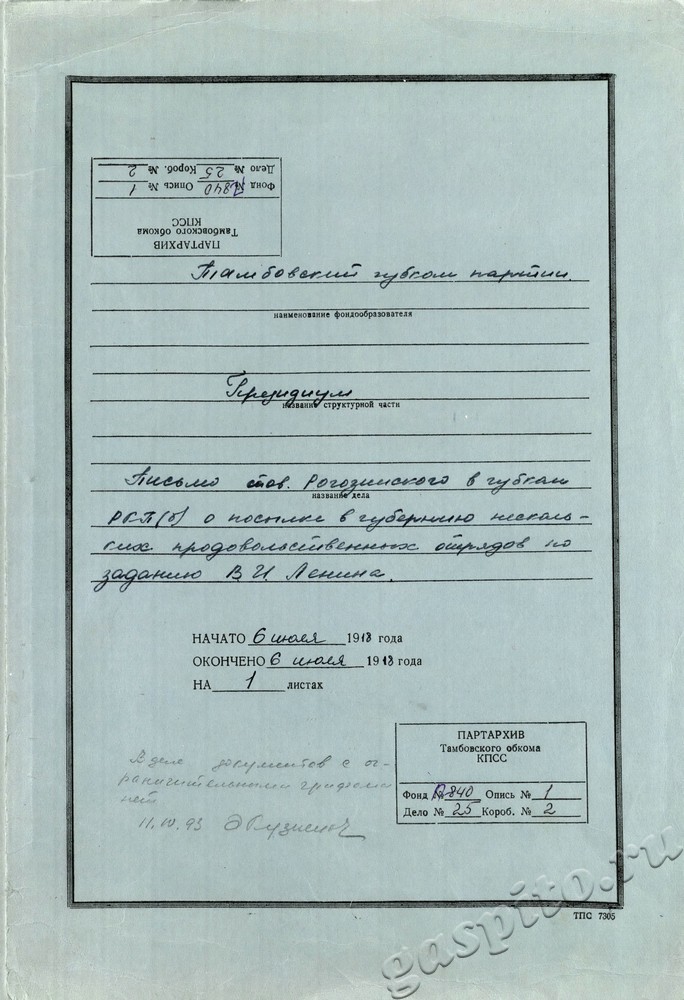 ПАРТАРХИВ
Тамбовского обкома
КПСС
Фонд № П840 Опись № 1
Дело № 25 Короб. № 2
Тамбовский губком партии.
наименование фондообразователя
Президиум
название структурной части
Письмо тов. Рогозинского в губком
название дела
РКП(б) о посылке в губернию несколь-
ких продовольственных отрядов по
заданию В И Ленина.
НАЧАТО 6 июля 1918 года
ОКОНЧЕНО 6 июля 1918 года
НА 1 листах
В деле документов с ог-
раничительными грифами
нет
11.IV.93
ПАРТАРХИВ
Тамбовского обкома
КПСС
Фонд № П840 Опись № 1
Дело № 25 Короб. № 2
ТПС 7305
gaspito.ru